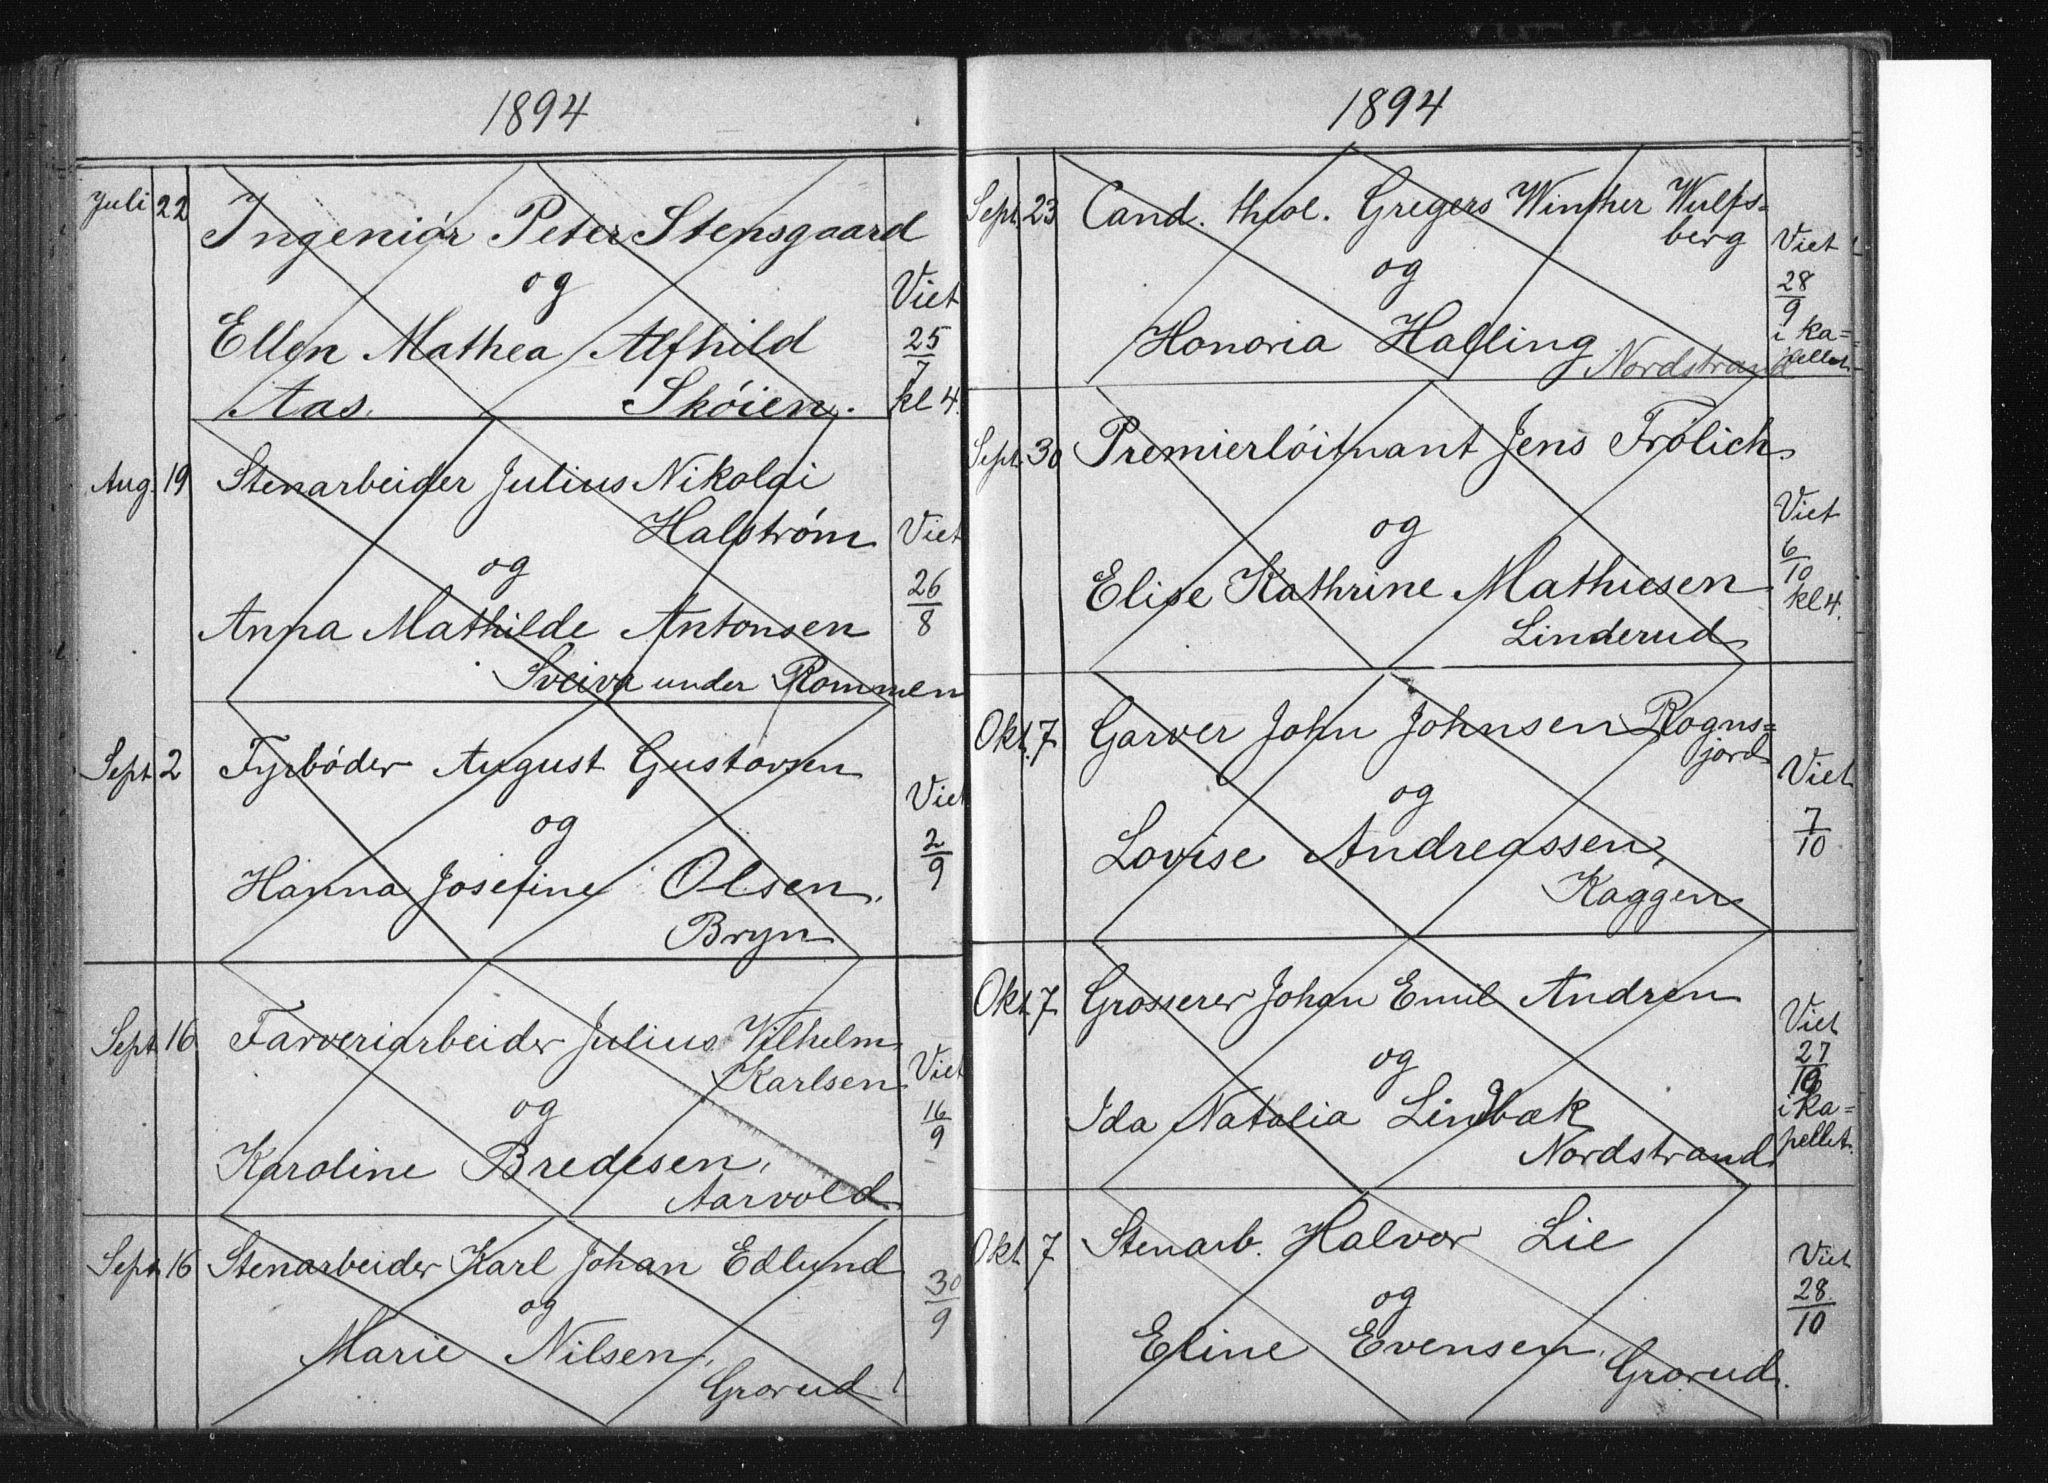 1894
Juli 22 Ingeniør Peter Stensgaard
og
Viet
Ellen Mathea Alfhild
25/7
Aas. Skøien. kl 4.
Aug. 19 Stenarbeider Julius Nikolai
Halstrøm Viet
og
26/8
Anna Mathilde Antonsen
Sveiva under Rommen
Sept 2 Fyrbøder August Gustavsen
Viet
og
2/9
Hanna Josefine Olsen,
Bryn
Sept 16 Farveriarbeider Julius Vilhelm
Karlsen Viet
og
16/9
Karoline Bredesen,
Aarvold
Sept 16 Stenarbeider Karl Johan Edlund
og
30/9
Marie Nilsen,
Grorud
1894
Sept. 23 Cand. theol. Gregers Winther Wulfs-
berg Viet
og
28/9
i ka-
Honoria Halling pellet
Nordstrand
Sept. 30 Premierløitnant Jens Frølich.
Viet
og
6/10
Elise Kathrine Mathiesen kl 4.
Linderud
Okt. 7 Garver John Johnsen Rogns-
jord Viet
og
7/10
Lovise Andreassen,
Kaggen
Okt. 7 Grosserer Johan Emil Andren
Viet
og
27/10
Ida Natalia Lindbæk i ka-
Nordstrand pellet.
Okt. 7 Stenarb. Halvor Lie
Viet
og
28/10
Eline Evensen,
Grorud.